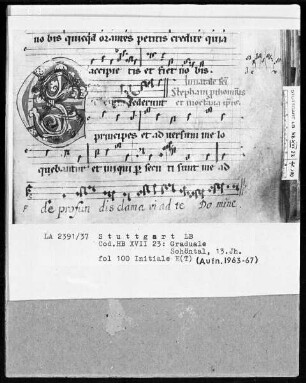 no bis quicq̄d orantes petitis credite quia
accipie tis et fiet no bis.
Stephani
ederunt
principes et ad versum me lo
quebantur et iniqui p̄ secu ti sunt me ad
de profun dis clama vi ad te Do mine
LA 2391/37 Stuttgart LB
Cod.HB XVII 23: Graduale
Schöntal, 13.Jh.
fol 100 Initiale E(T) (Aufn.1963-67)